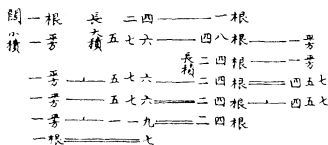 闊一根 長二四——一根
小積一平方 大積五七六——四八根一平方
長積二四根一平方
一平方⊥五七六——二四根══四五七
一平方⊥五七六══二四根⊥四五七
一平方⊥一一九══二四根
一根══七